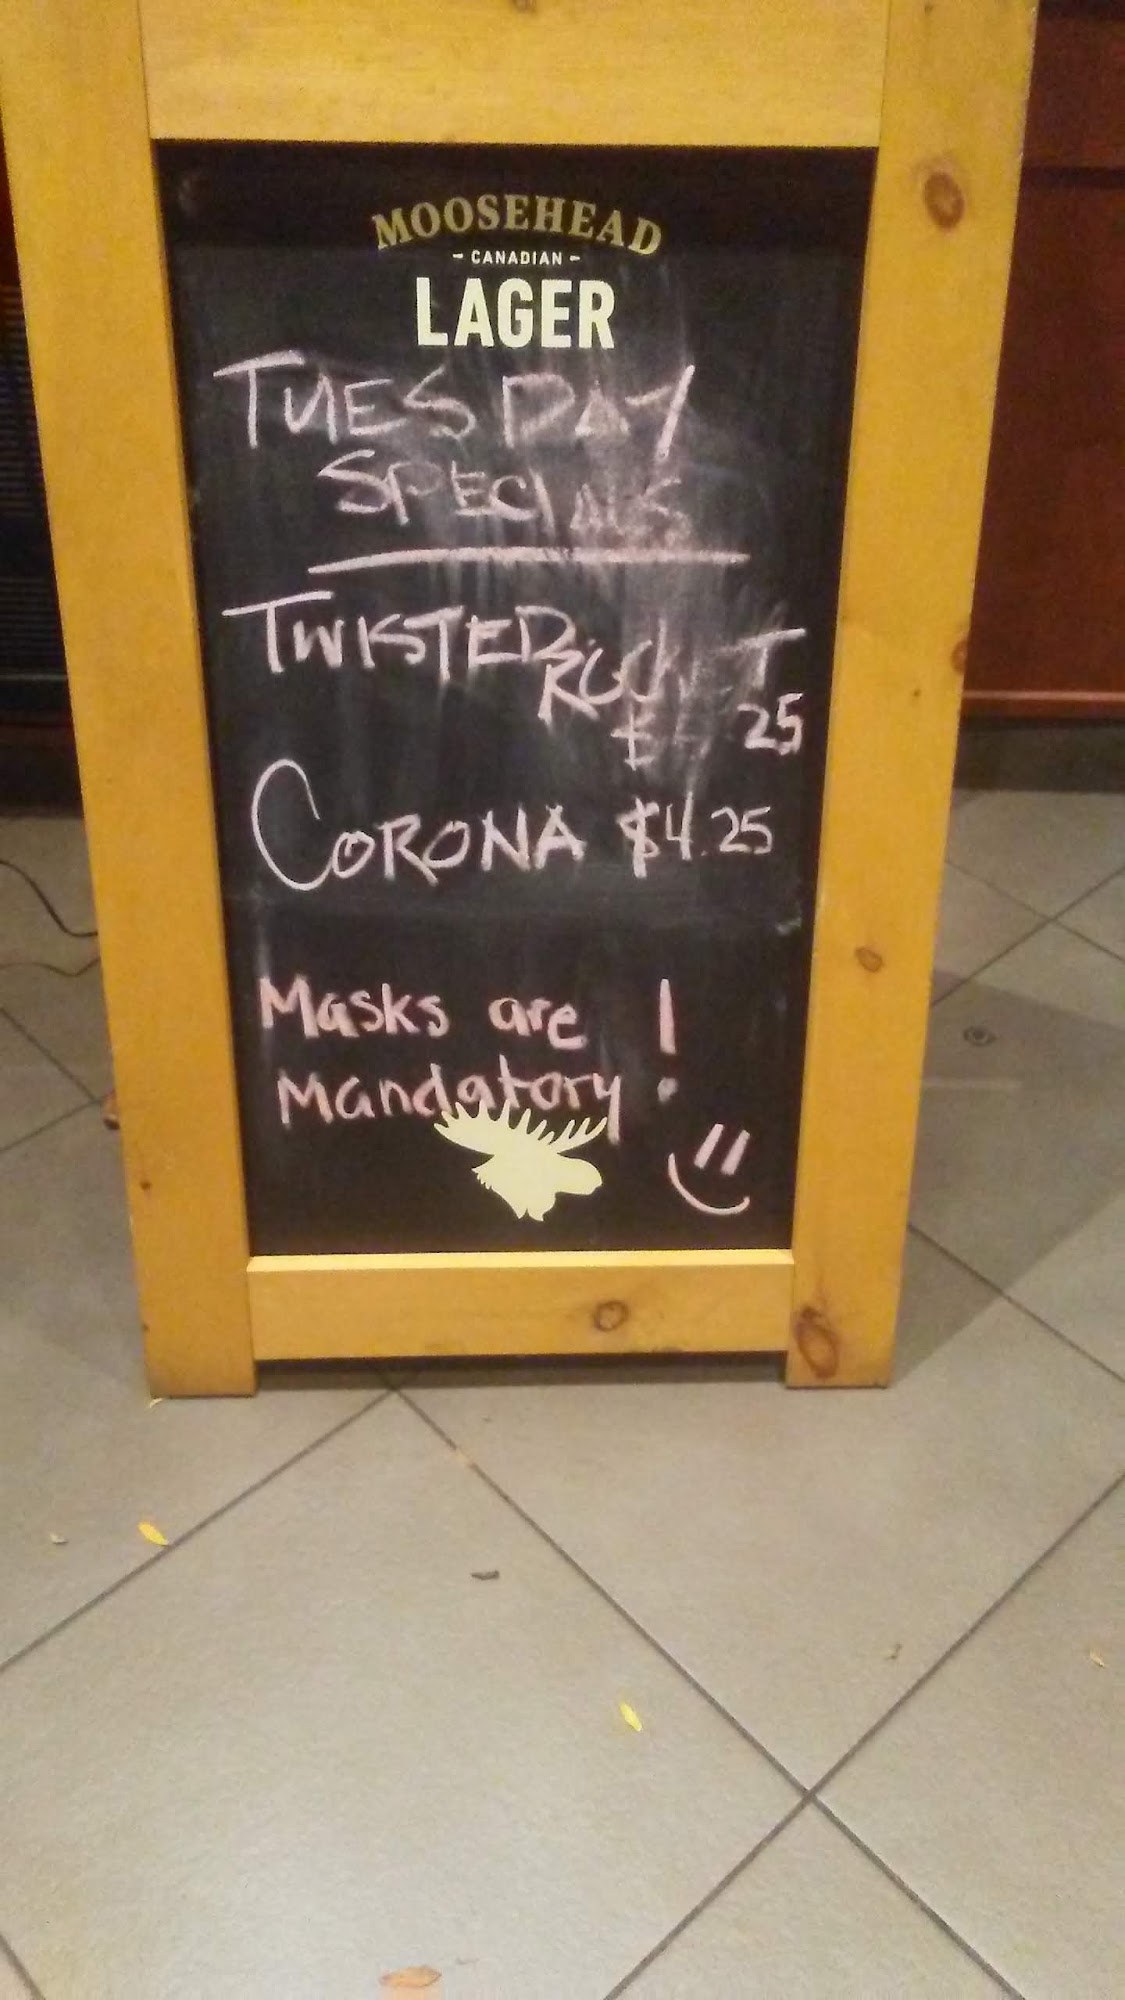 MOOSEHEAD
- CANADIAN -
LAGER
TUESDAY
SPECIALS
TWISTED
ROCKET
$4.25
CORONA $4.25
Masks are
mandatory!